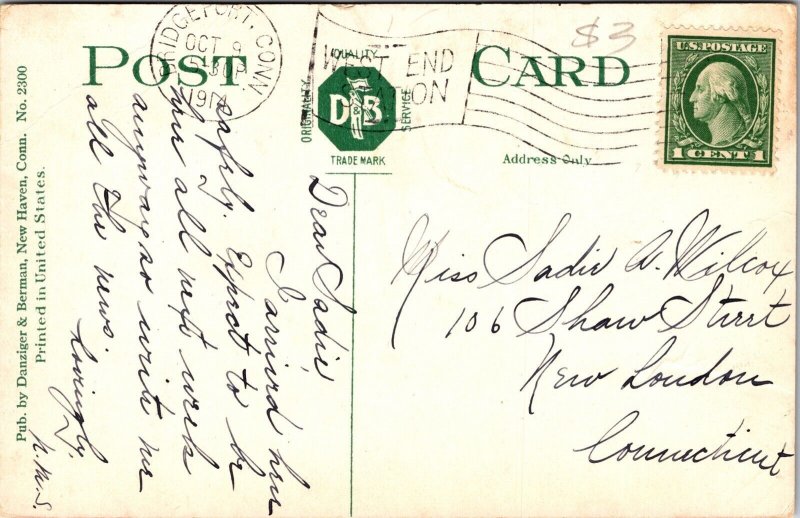 POST CARD
$3
BRIDGEPORT, CONN.
OCT 9
530P
191
WEST END
STATION
U.S. POSTAGE
1 CENT 1
QUALITY
ORIGINALITY
SERVICE
D&B
TRADE MARK
Address Only
Dear Sadie
I arrived here
safely. Expect to be
here all next week
anyway so write me
all the news.
Lovingly
N. M. S.
Miss Sadie A. Wilcox
106 Shaw Street
New London
Connecticut
Pub. by Danziger & Berman, New Haven, Conn. No. 2300
Printed in United States.